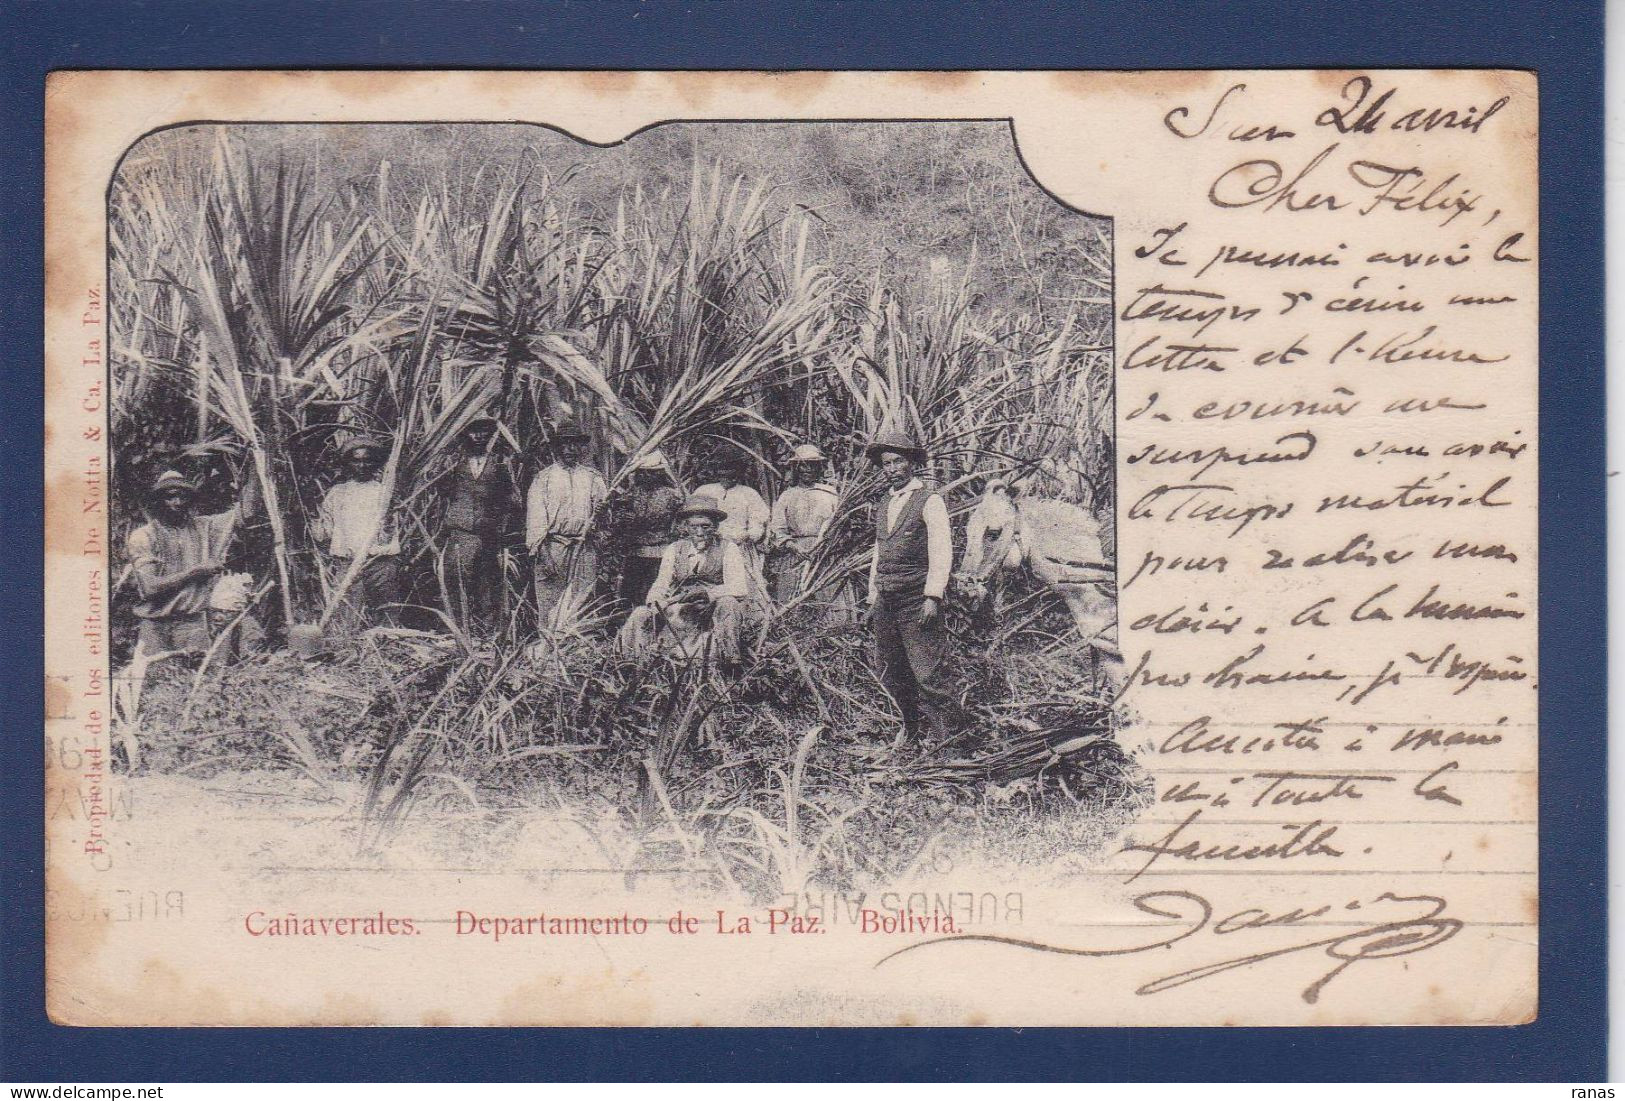 24 avril
Cher Félix,
Je pensais avoir le
temps d'écrire une
lettre et l'heure
du courrier me
surprend sans avoir
le temps matériel
pour réaliser mon
désir. A la semaine
prochaine, je l'espère.
Amitiés à
et à toute la
famille.
Propiedad de los editores De Notta & Ca. La Paz.
Cañaverales. Departamento de La Paz. Bolivia.
BUENOS AIRE
BUENOS
MAY
ranas